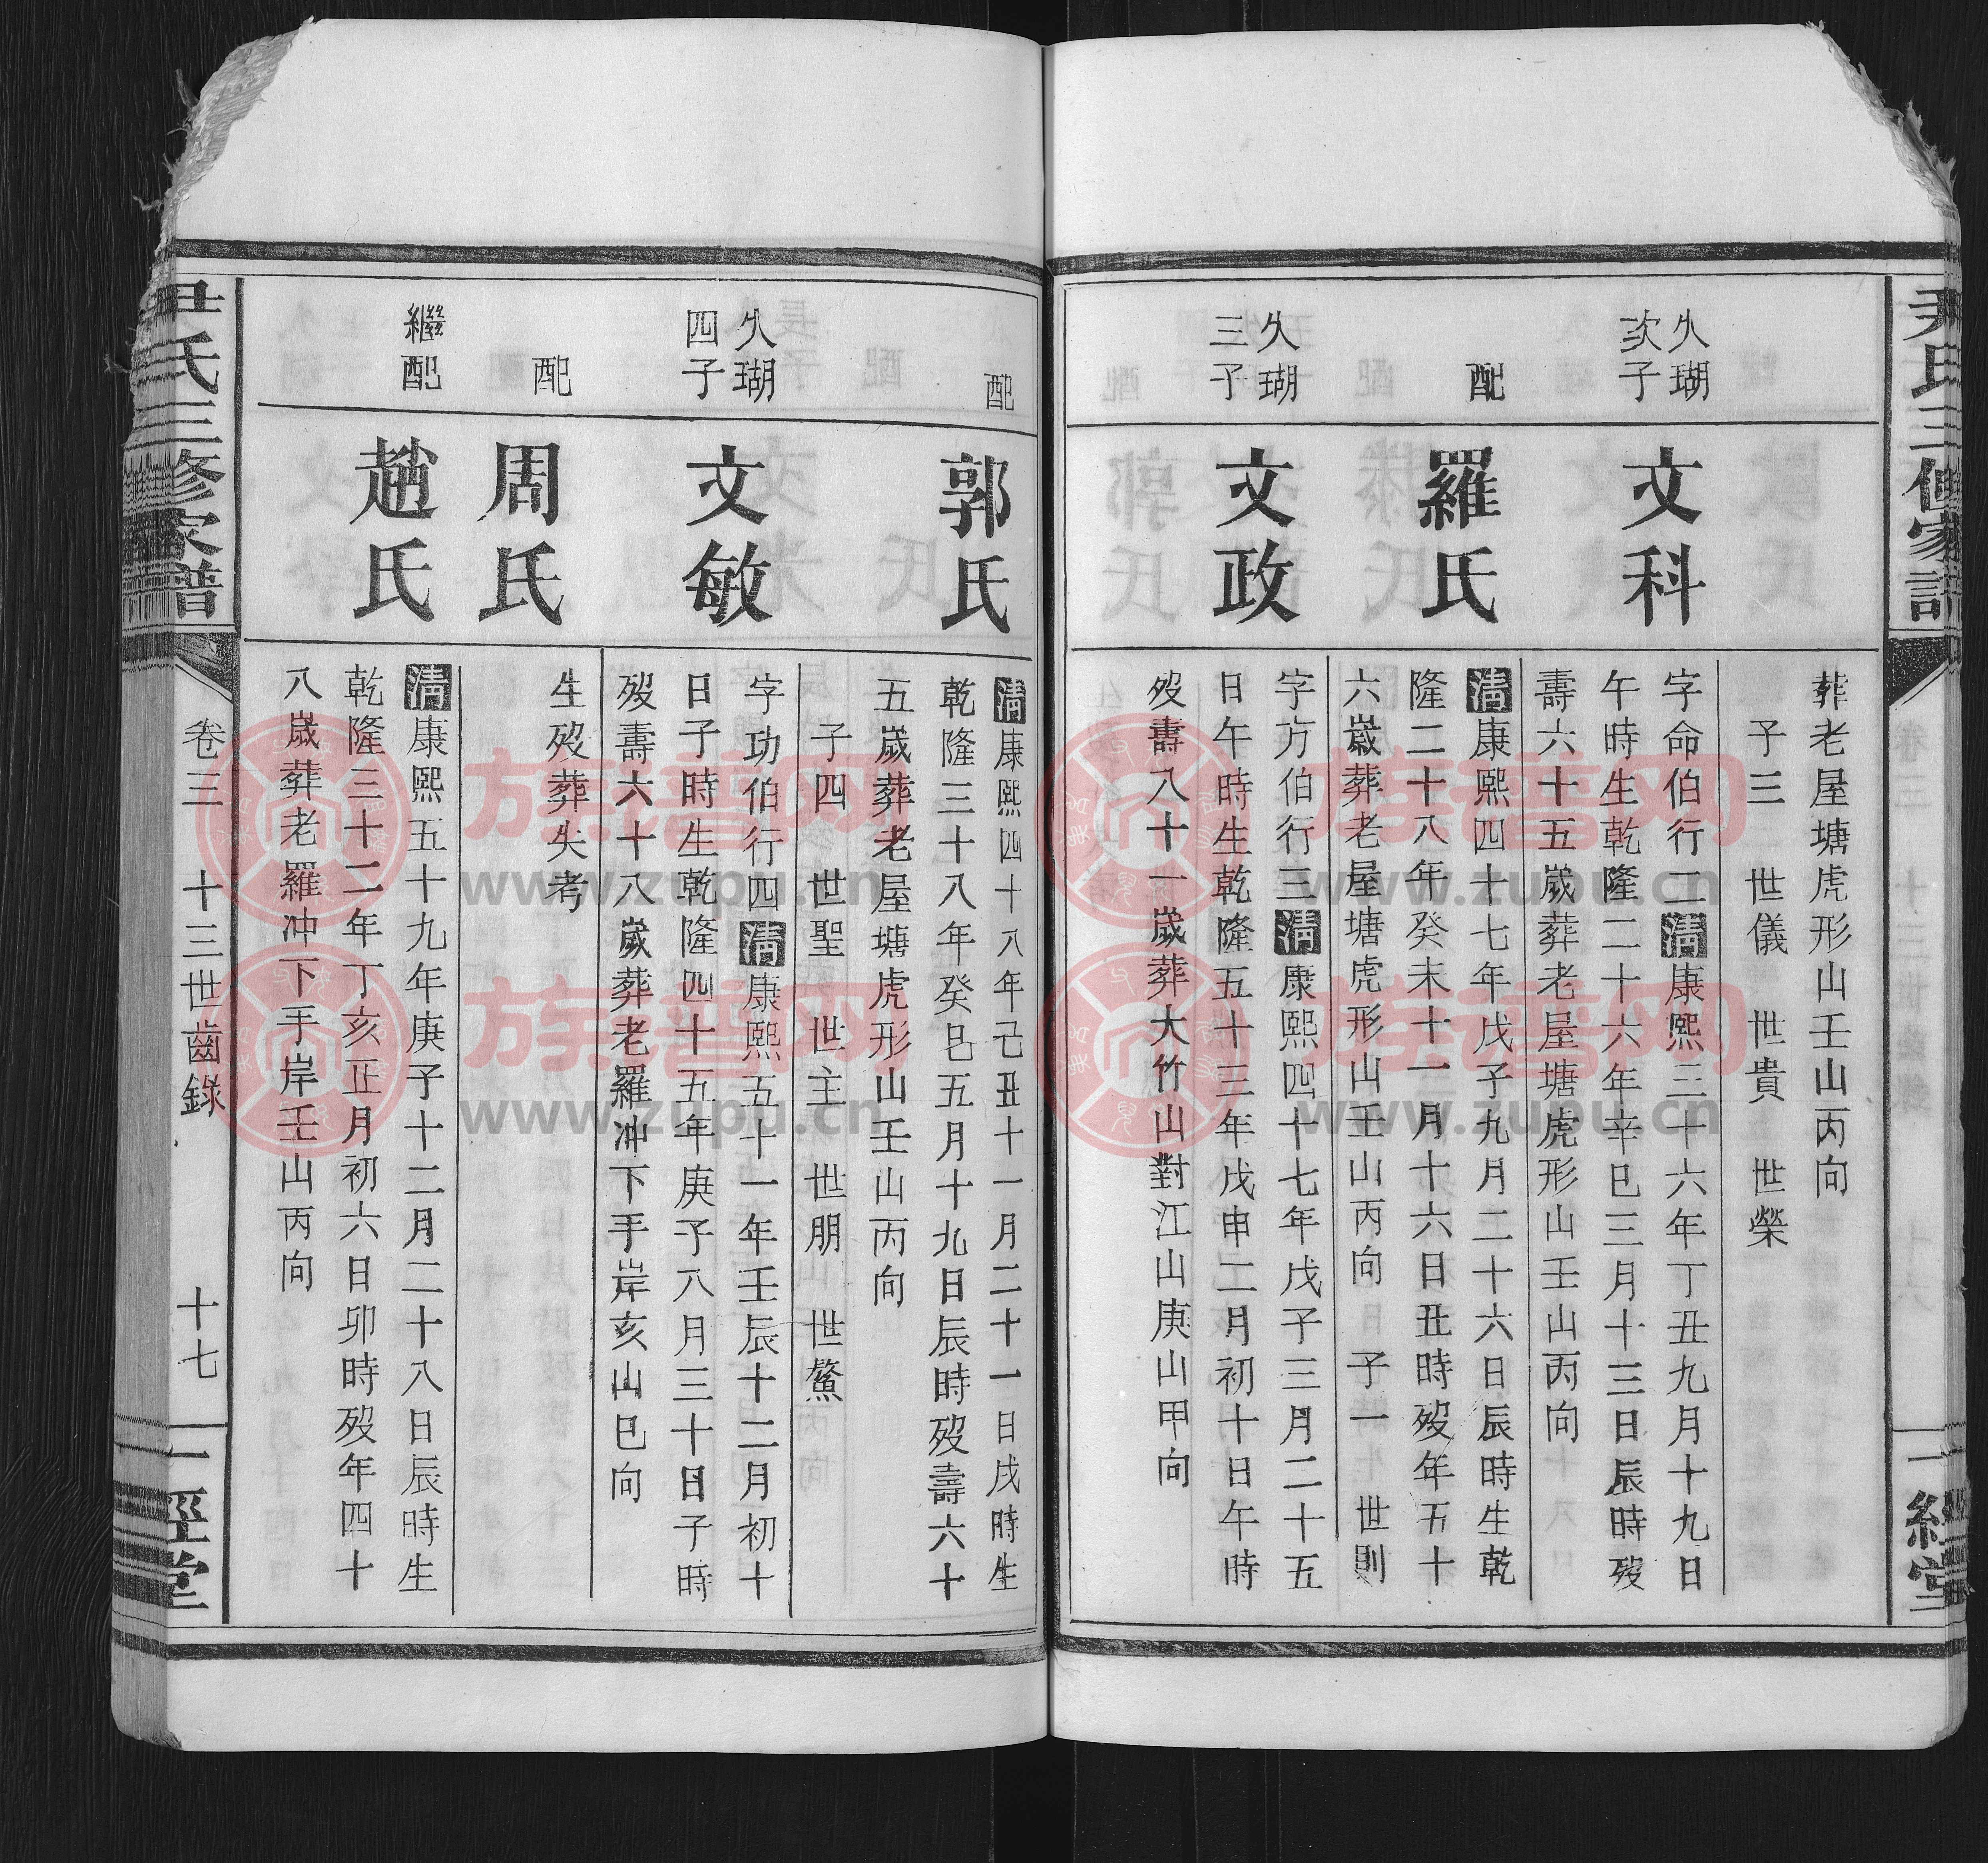 尹氏三修家譜
一經堂
葬老屋塘虎形山壬山丙向
子三 世儀 世貴 世榮
久瑚
次子
文科
字命伯行二清康熙三十六年丁丑九月十九日
午時生乾隆二十六年辛巳三月十三日辰時歿
壽六十五歲葬老屋塘虎形山壬山丙向
配
羅氏
清康熙四十七年戊子九月二十六日辰時生乾
隆二十八年癸未十一月十六日丑時歿年五十
六歲葬老屋塘虎形山壬山丙向 子一 世則
久瑚
三子
文政
字方伯行三清康熙四十七年戊子三月二十五
日午時生乾隆五十三年戊申二月初十日午時
歿壽八十一歲葬大竹山對江山庚山甲向
配
郭氏
清康熙四十八年己丑十一月二十一日戌時生
乾隆三十八年癸巳五月十九日辰時歿壽六十
五歲葬老屋塘虎形山壬山丙向
子四 世聖 世主 世朋 世鰲
久瑚
四子
文敏
字功伯行四清康熙五十一年壬辰十二月初十
日子時生乾隆四十五年庚子八月三十日子時
歿壽六十八歲葬老羅冲下手岸亥山巳向
配
周氏
生歿葬失考
繼配
趙氏
清康熙五十九年庚子十二月二十八日辰時生
乾隆三十二年丁亥正月初六日卯時歿年四十
八歲葬老羅冲下手岸壬山丙向
尹氏三修家譜
卷三 十三世齒錄
十七
一經堂
族譜网
www.zupu.cn
族譜网
www.zupu.cn
族譜网
www.zupu.cn
族譜网
www.zupu.cn